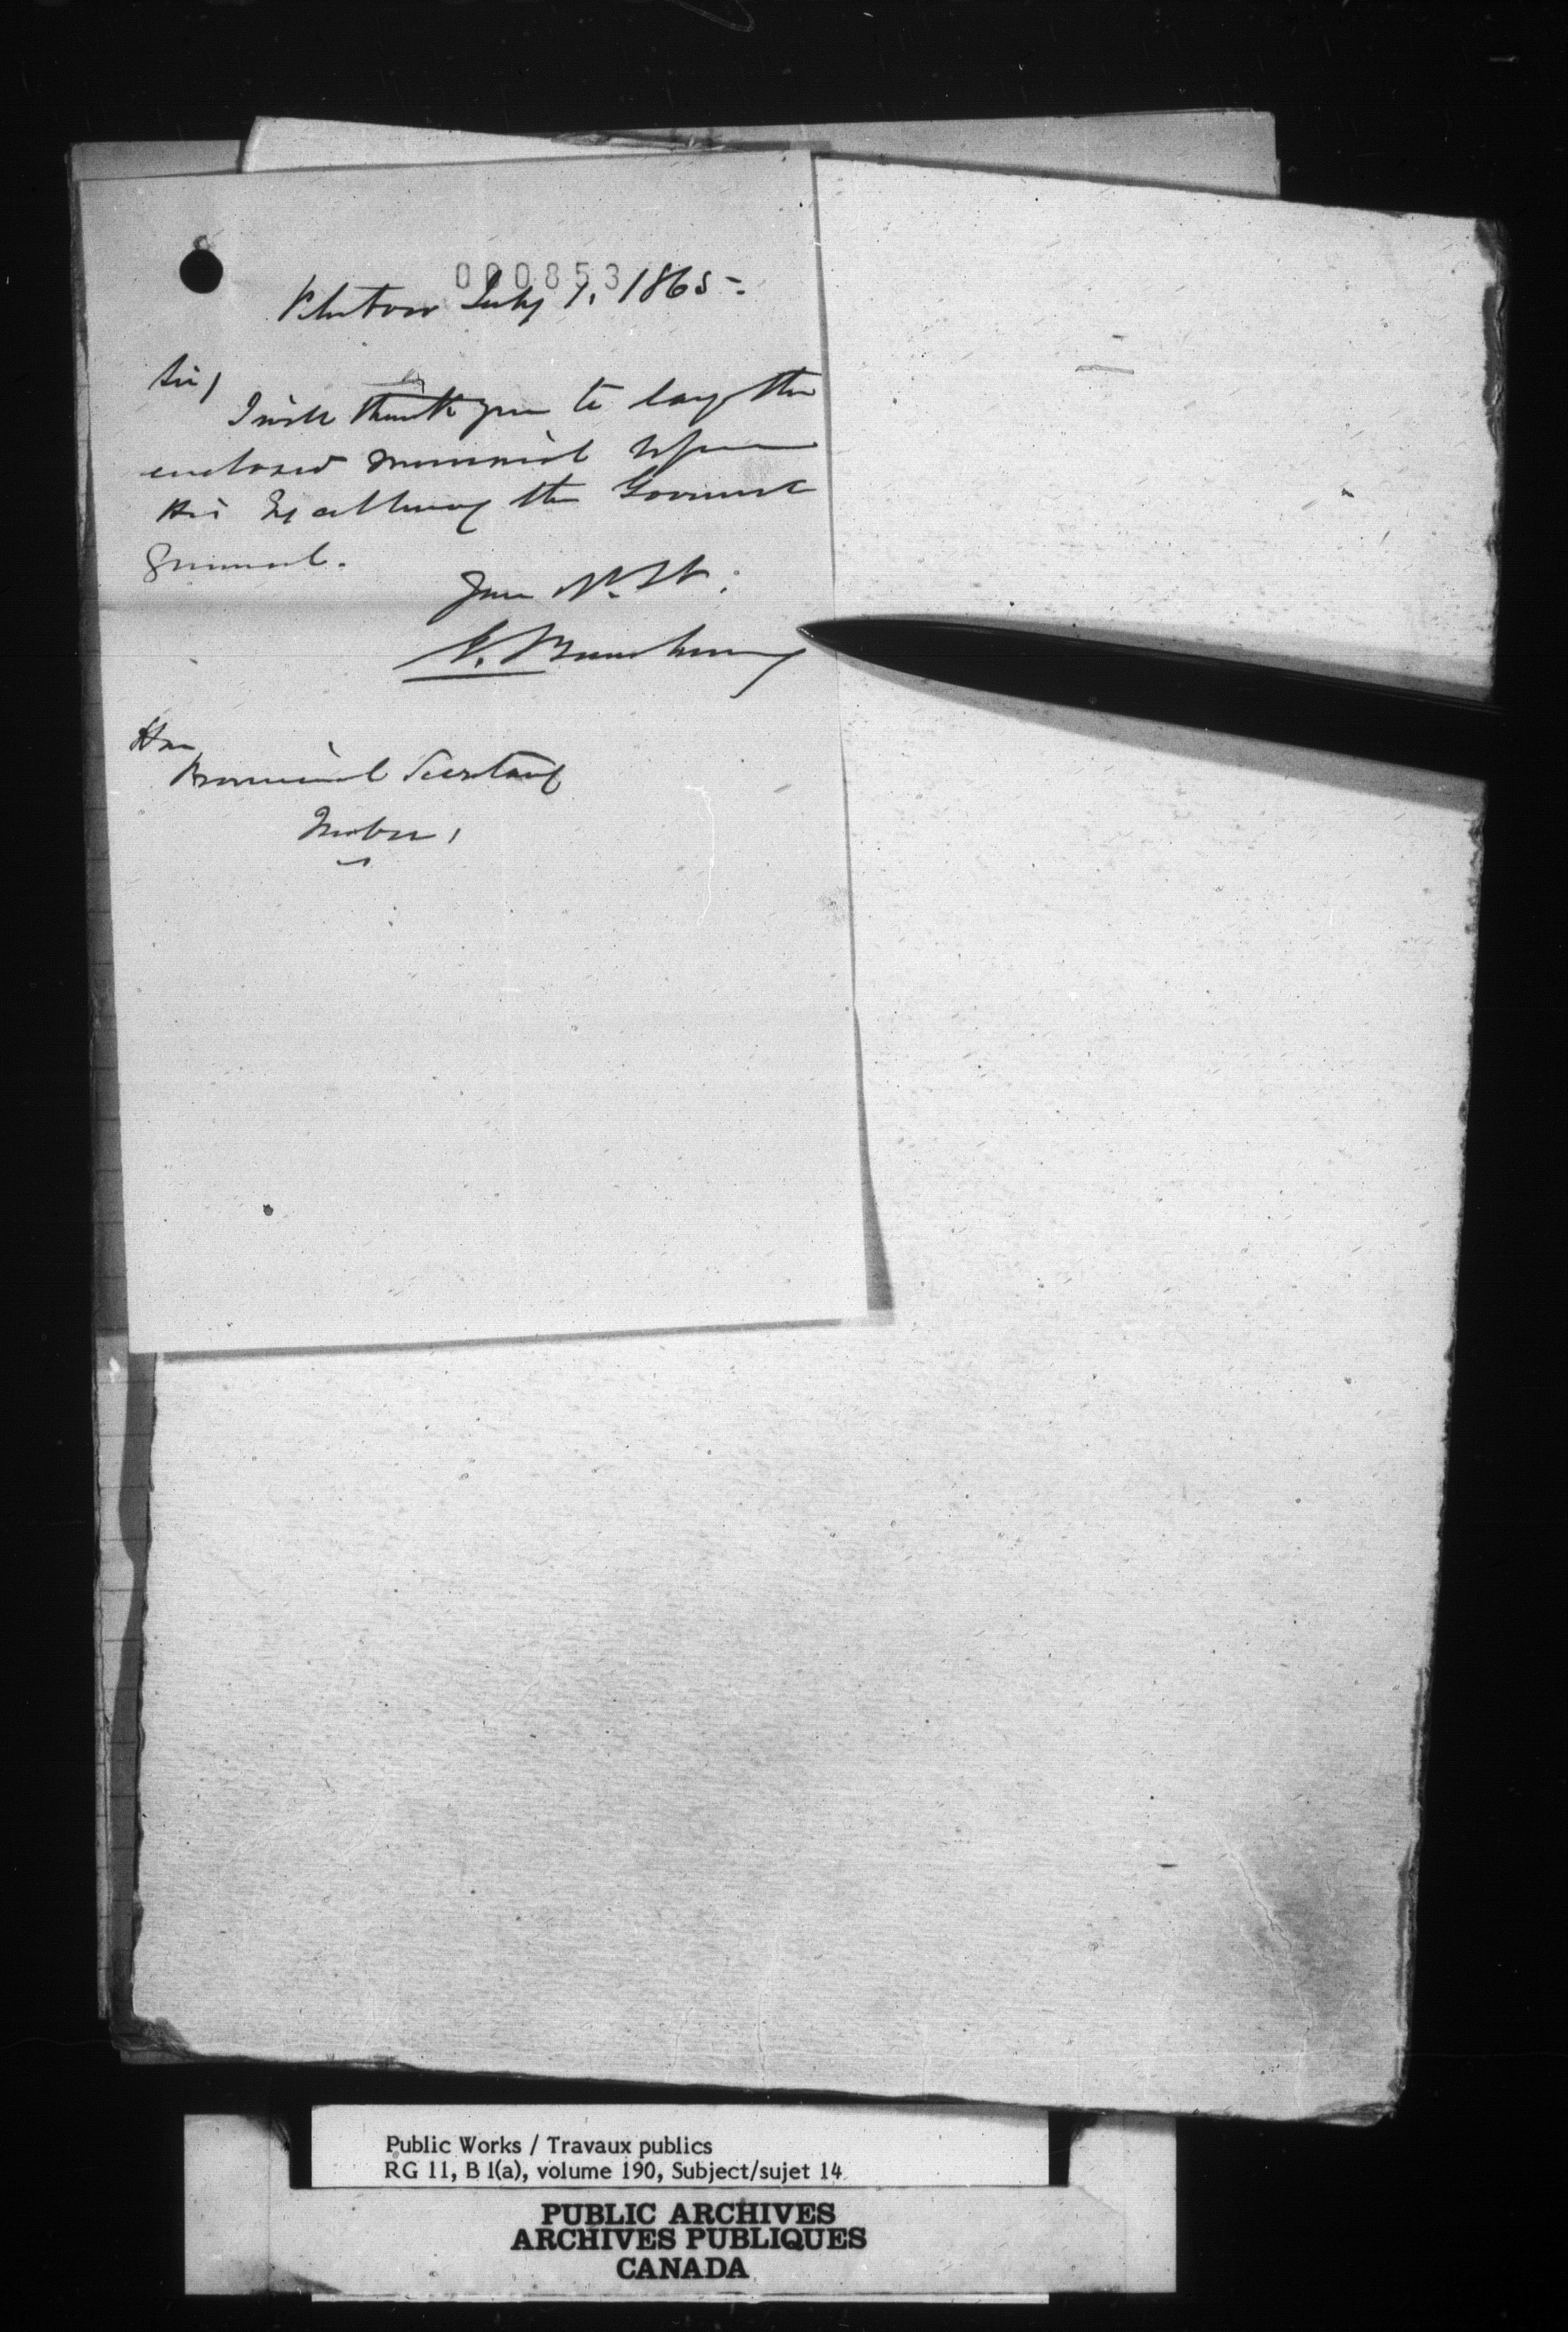 000853
July 7, 1865.
Sir,
I will thank you to lay the
enclosed memorial before
His Excellency the Governor
General.
Your
Hon
Provincial Secretary
Quebec,
Public Works / Travaux publics
RG 11, B 1(a), volume 190, Subject/sujet 14
PUBLIC ARCHIVES
ARCHIVES PUBLIQUES
CANADA